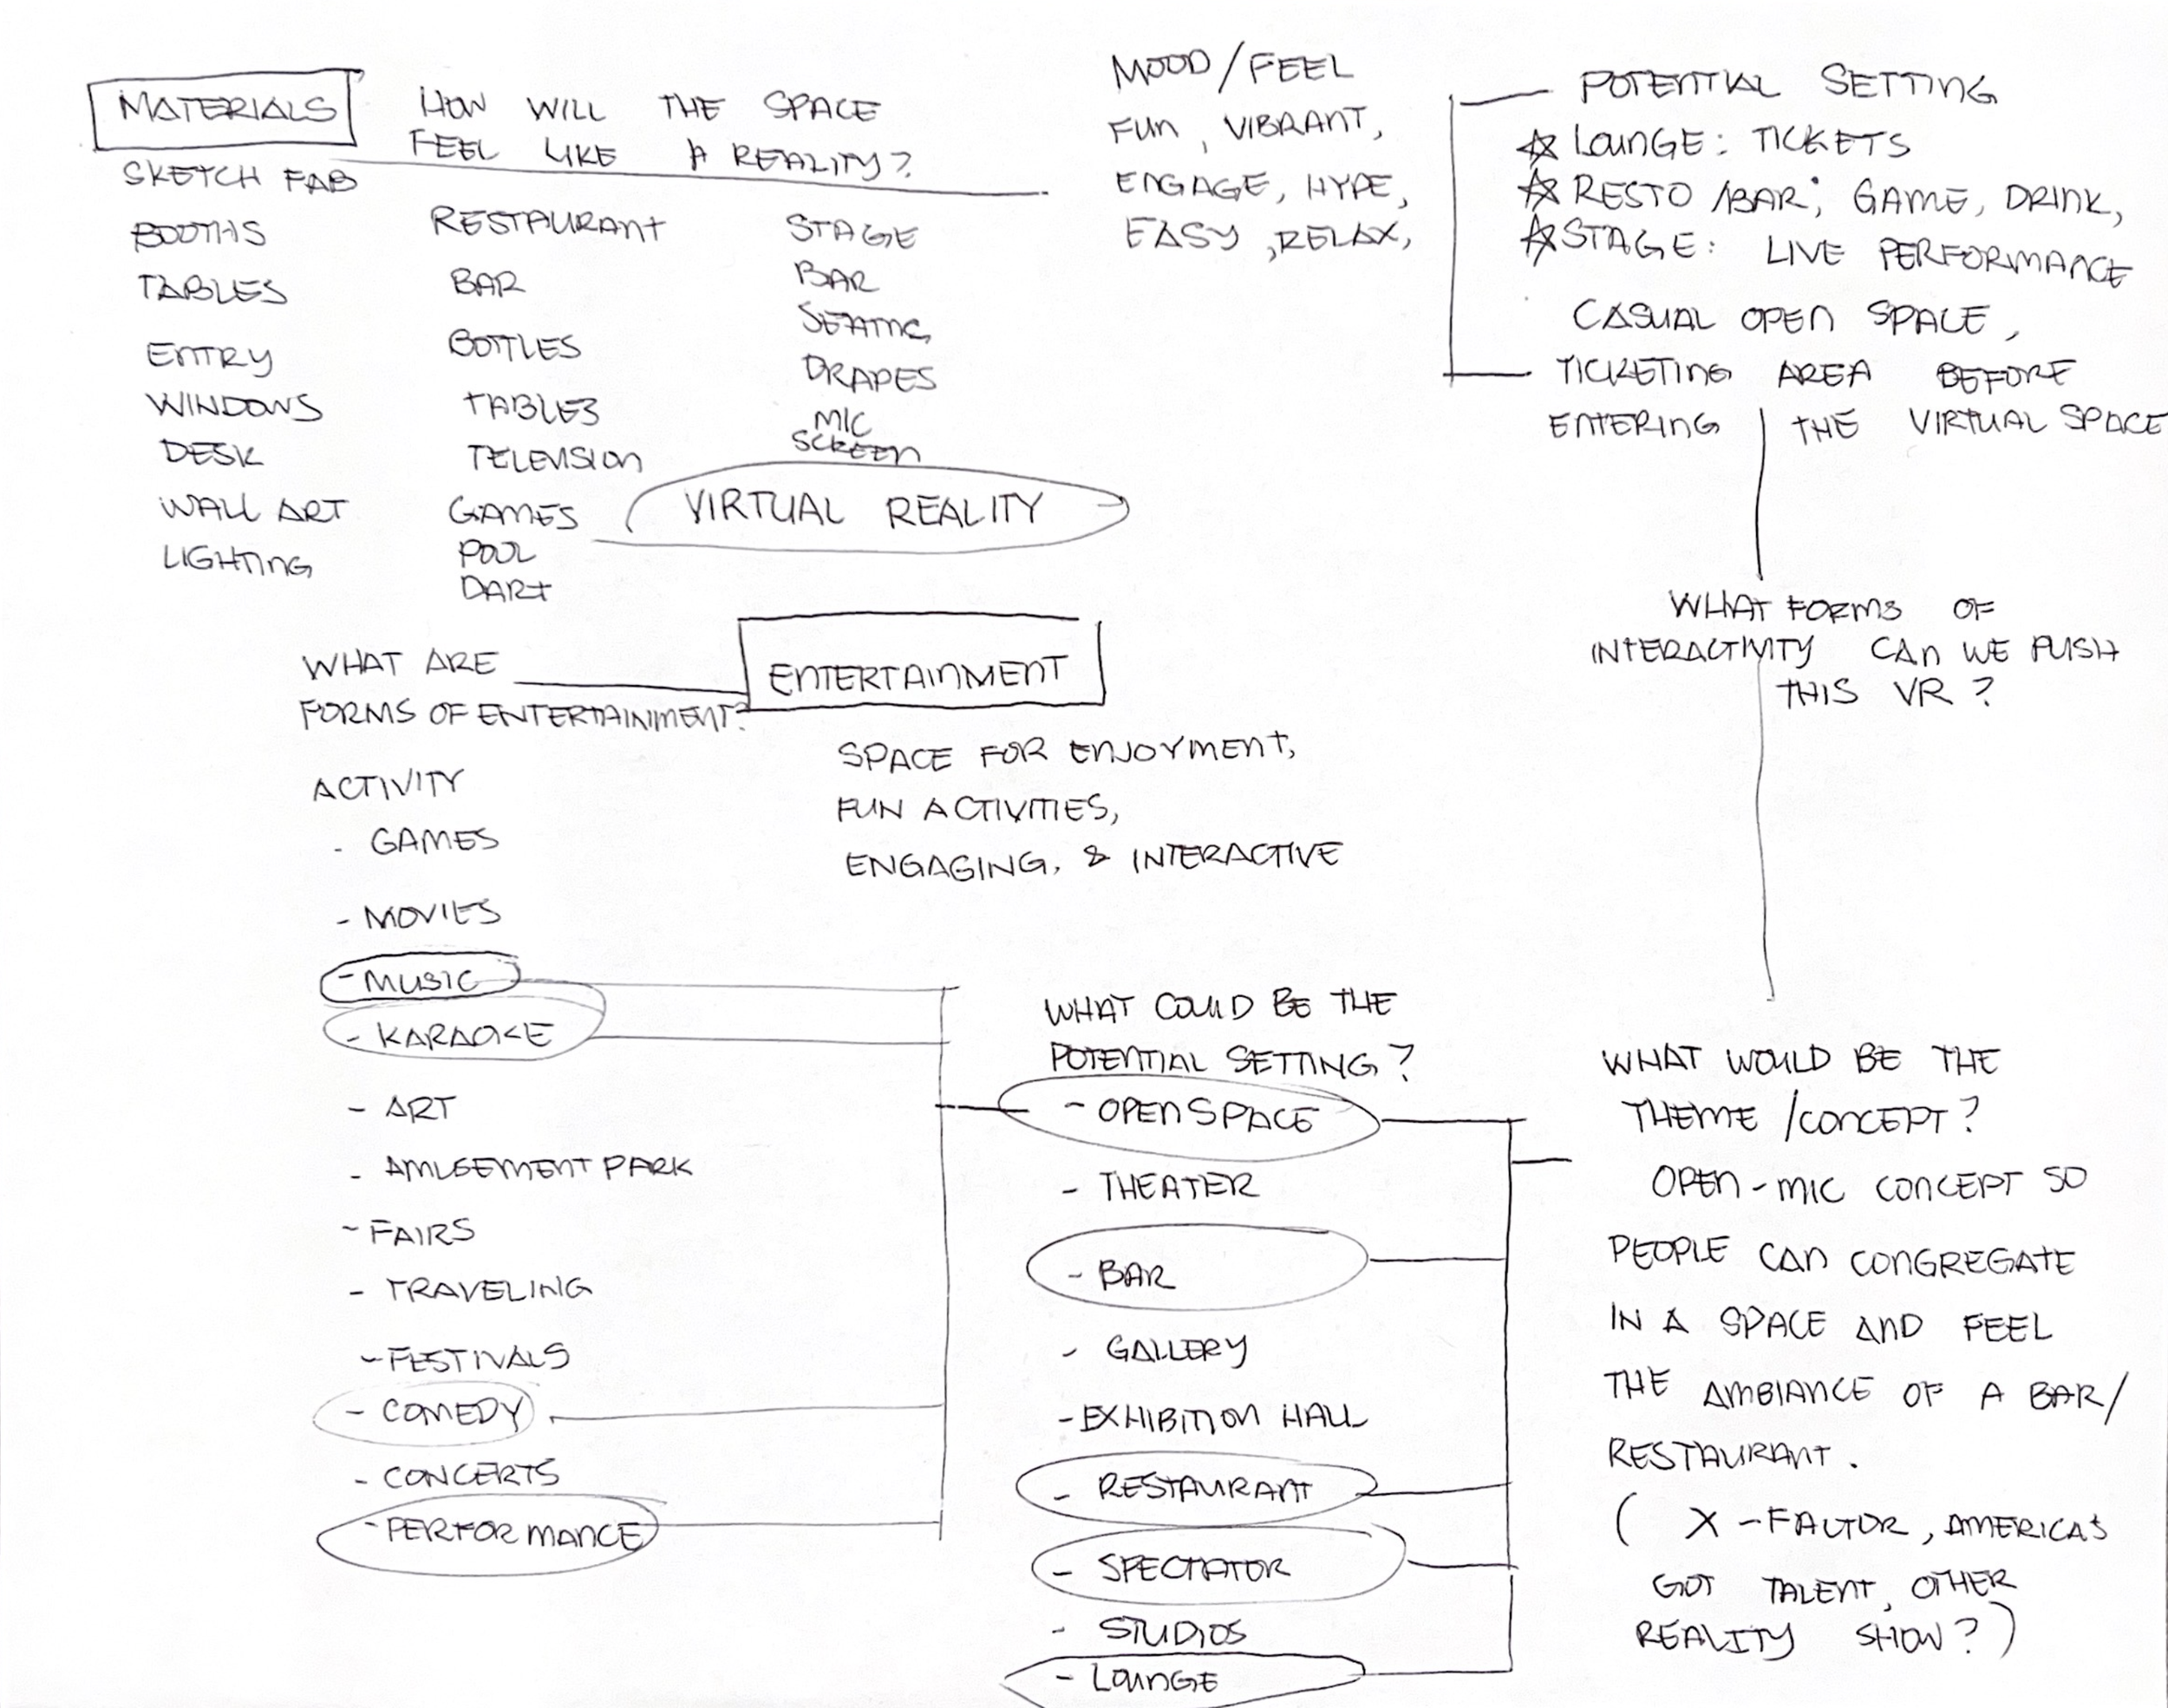 MATERIALS
HOW WILL THE SPACE
FEEL LIKE A REALITY?
SKETCH FAB
BOOTHS
TABLES
ENTRY
WINDOWS
DESK
WALL ART
LIGHTING
RESTAURANT
BAR
BOTTLES
TABLES
TELEVISION
GAMES
POOL
DART
STAGE
BAR
SEATING
DRAPES
MIC
SCREEN
VIRTUAL REALITY
MOOD/FEEL
FUN, VIBRANT,
ENGAGE, HYPE,
EASY, RELAX,
POTENTIAL SETTING
☆ LOUNGE: TICKETS
☆ RESTO/BAR; GAME, DRINK,
☆ STAGE: LIVE PERFORMANCE
CASUAL OPEN SPACE,
TICKETING AREA BEFORE
ENTERING THE VIRTUAL SPACE
WHAT FORMS OF
INTERACTIVITY CAN WE PUSH
THIS VR?
WHAT ARE
FORMS OF ENTERTAINMENT?
ENTERTAINMENT
SPACE FOR ENJOYMENT,
FUN ACTIVITIES,
ENGAGING, & INTERACTIVE
ACTIVITY
- GAMES
- MOVIES
- MUSIC
- KARAOKE
- ART
- AMUSEMENT PARK
- FAIRS
- TRAVELING
- FESTIVALS
- COMEDY
- CONCERTS
- PERFORMANCE
WHAT COULD BE THE
POTENTIAL SETTING?
- OPEN SPACE
- THEATER
- BAR
- GALLERY
- EXHIBITION HALL
- RESTAURANT
- SPECTATOR
- STUDIOS
- LOUNGE
WHAT WOULD BE THE
THEME/CONCEPT?
OPEN-MIC CONCEPT SO
PEOPLE CAN CONGREGATE
IN A SPACE AND FEEL
THE AMBIANCE OF A BAR/
RESTAURANT.
( X-FACTOR, AMERICAS
GOT TALENT, OTHER
REALITY SHOW?)